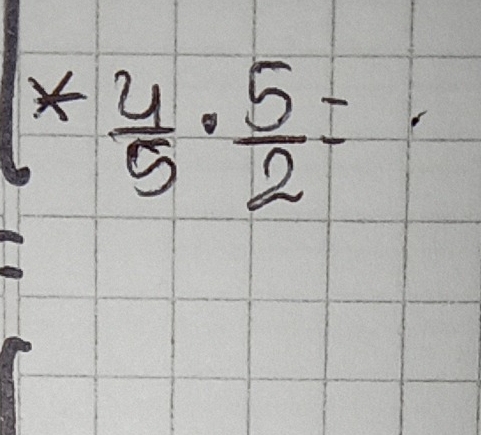 * 4/5 · 5/2 =